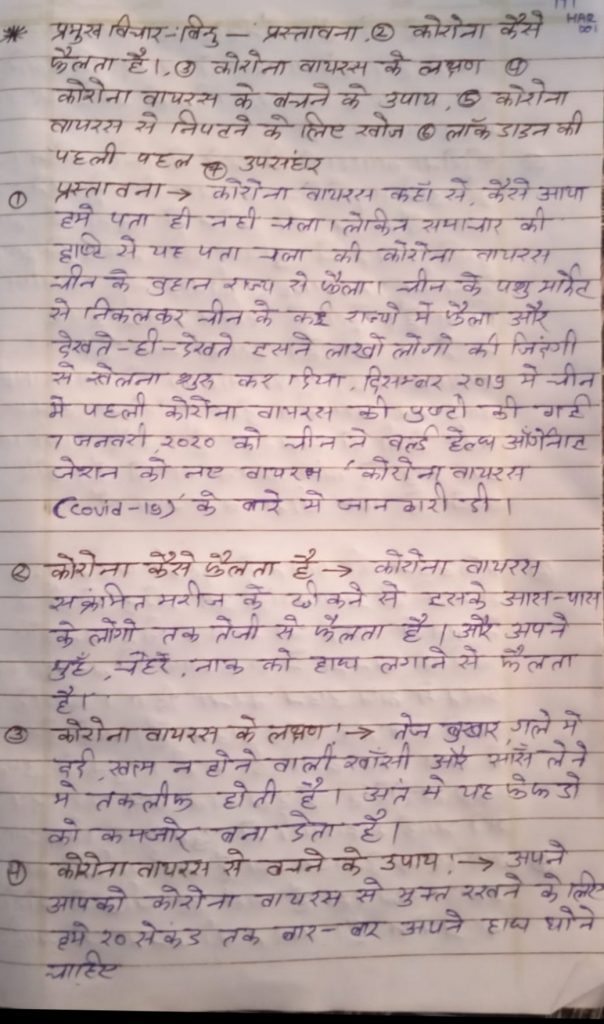 * प्रमुख विचार-बिन्दु — प्रस्तावना, ② कोरोना कैसे
फैलता है।, ③ कोरोना वायरस के लक्षण ④
कोरोना वायरस के बचने के उपाय, ⑤ कोरोना
वायरस से निपटने के लिए खोज ⑥ लॉकडाउन की
पहली पहल ⑦ उपसंहार
① प्रस्तावना → कोरोना वायरस कहाँ से, कैसे आया
हमे पता ही नही चला। लेकिन समाचार की
दृष्टि से यह पता चला की कोरोना वायरस
चीन के वुहान राज्य से फैला। चीन के पशु मार्केट
से निकलकर चीन के कई राज्यो में फैला और
देखते-ही-देखते इसने लाखों लोगो की जिंदगी
से खेलना शुरू कर दिया, दिसम्बर २०१९ मे चीन
मे पहली कोरोना वायरस की पुष्टी की गई
७ जनवरी २०२० को चीन ने वर्ल्ड हेल्थ ऑर्गेनाइ
जेशन को नए वायरस 'कोरोना वायरस
(covid-19)' के बारे मे जानकारी दी।
② कोरोना कैसे फैलता है → कोरोना वायरस
संक्रमित मरीज के छीकने से इसके आस-पास
के लोगो तक तेजी से फैलता है। और अपने
मुहँ, चेहरे, नाक को हाथ लगाने से फैलता
है।
③ कोरोना वायरस के लक्षण :→ तेज बुखार, गले मे
दर्द, खत्म न होने वाली खाँसी और साँस लेने
मे तकलीफ होती है। अंत मे यह फेफडो
को कमजोर बना देता है।
④ कोरोना वायरस से बचने के उपाय :→ अपने
आपको कोरोना वायरस से मुक्त रखने के लिए
हमे २० सेकंड तक बार-बार अपने हाथ धोने
चाहिए